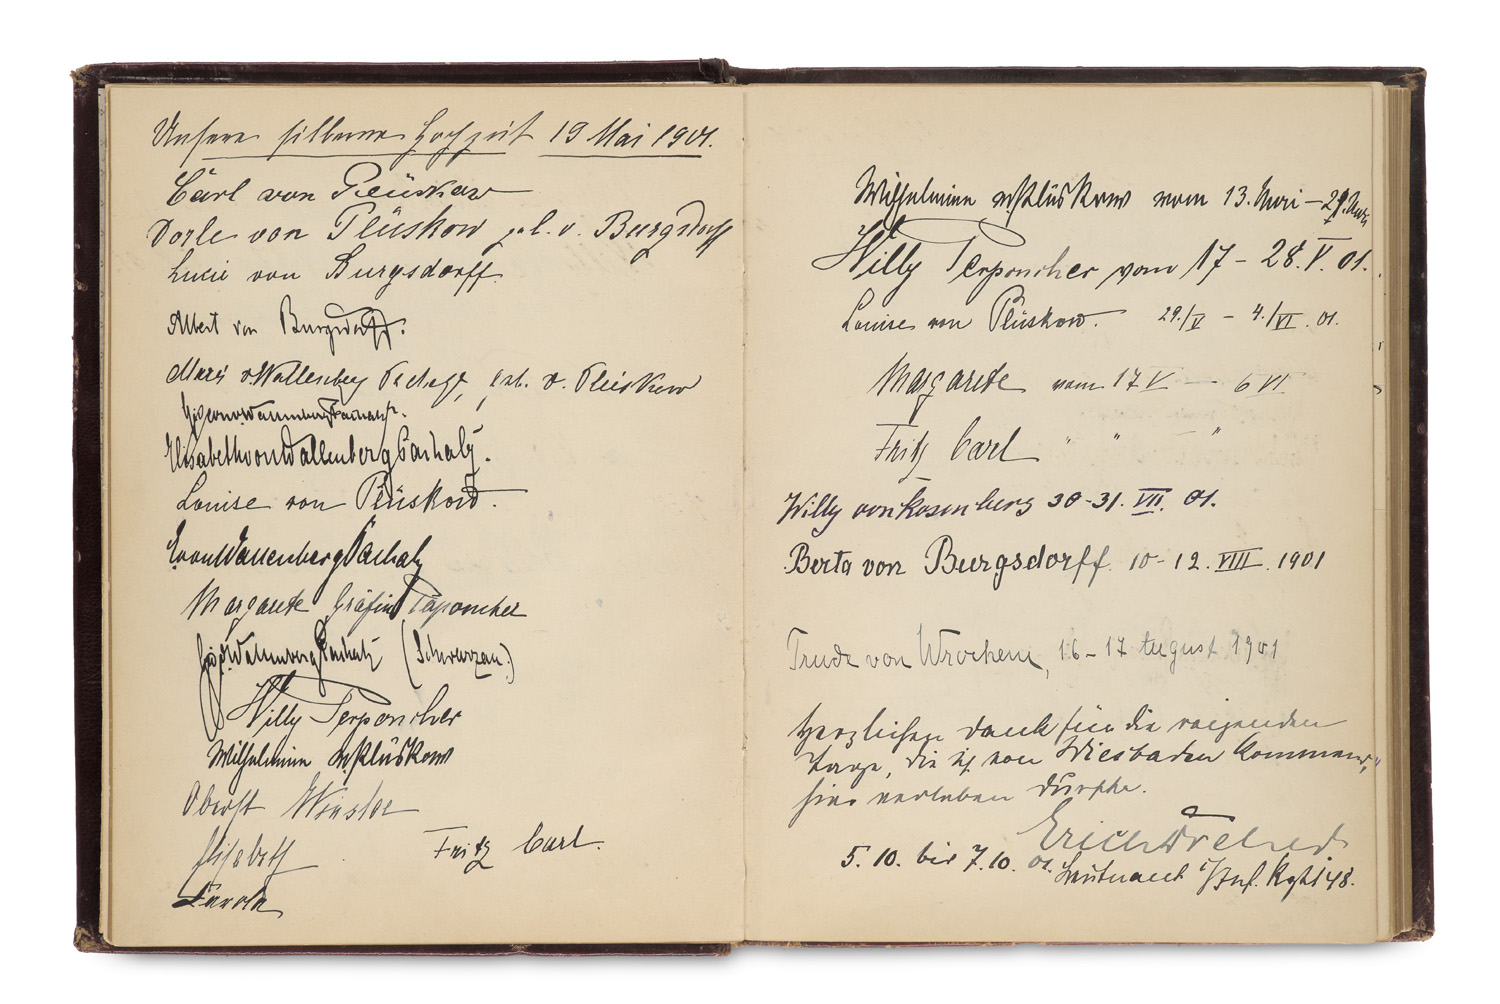 Unsere silberne Hochzeit 19 Mai 1901.
Carl von Plüskow
Dorle von Plüskow geb. v. Burgsdorff
Lucie von Burgsdorff.
Albert von Burgsdorff.
Marie v. Wallenberg Pachaly, geb. v. Plüskow
von Wallenberg Pachaly.
Elisabeth von Wallenberg Pachaly.
Louise von Plüskow.
E. von Wallenberg Pachaly
Margarete Gräfin Terponcher
v. Wallenberg Pachaly (Schwarzau.)
Willy Terponcher
Wilhelmine v. Plüskow
Oberst Winsloe
Elisabeth
Fritz Carl.
Carola
Wilhelmine v. Plüskow vom 13. Mai – 29. Mai
Willy Terponcher vom 17 – 28. V. 01.
Louise von Plüskow. 29./V – 4./VI. 01.
Margarete vom 17 V – 6 VI
Fritz Carl " " – "
Willy von Rosenberg 30-31. VII. 01.
Berta von Burgsdorff. 10-12. VIII. 1901
Trude von Wrochem, 16-17 August 1901
Herzlichen Dank für die reizenden
Tage, die ich von Wiesbaden kommend,
hier verleben durfte.
Erich
5. 10. bis 7. 10. 01. Leutnant i/Inf. Rgt 148.